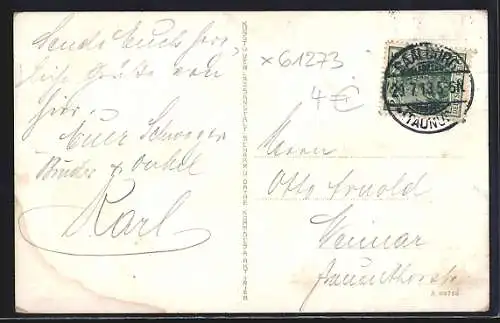 Sende Euch herz-
liche Grüße von
hier.
Euer Schwager
Bruder u. Onkel
Karl
x61273
4 €
SAALBURG
29.7.13.5-6N
(TAUNUS)
Herrn
Otto Arnold
Weimar